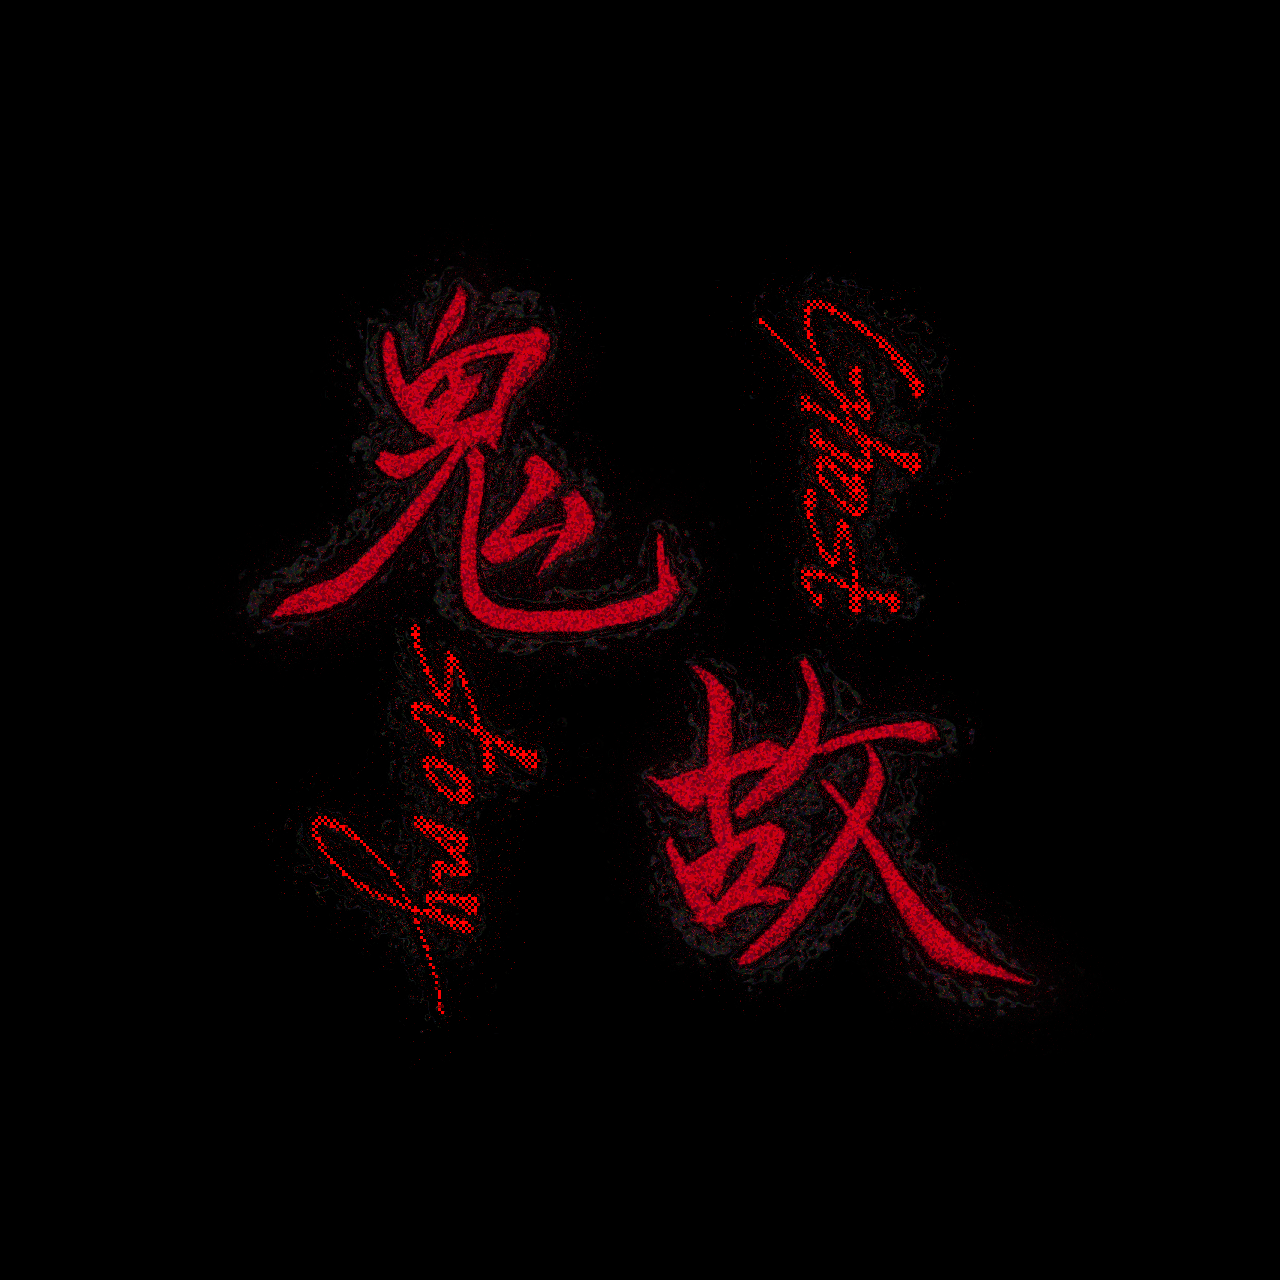 鬼
Ghost
故
story